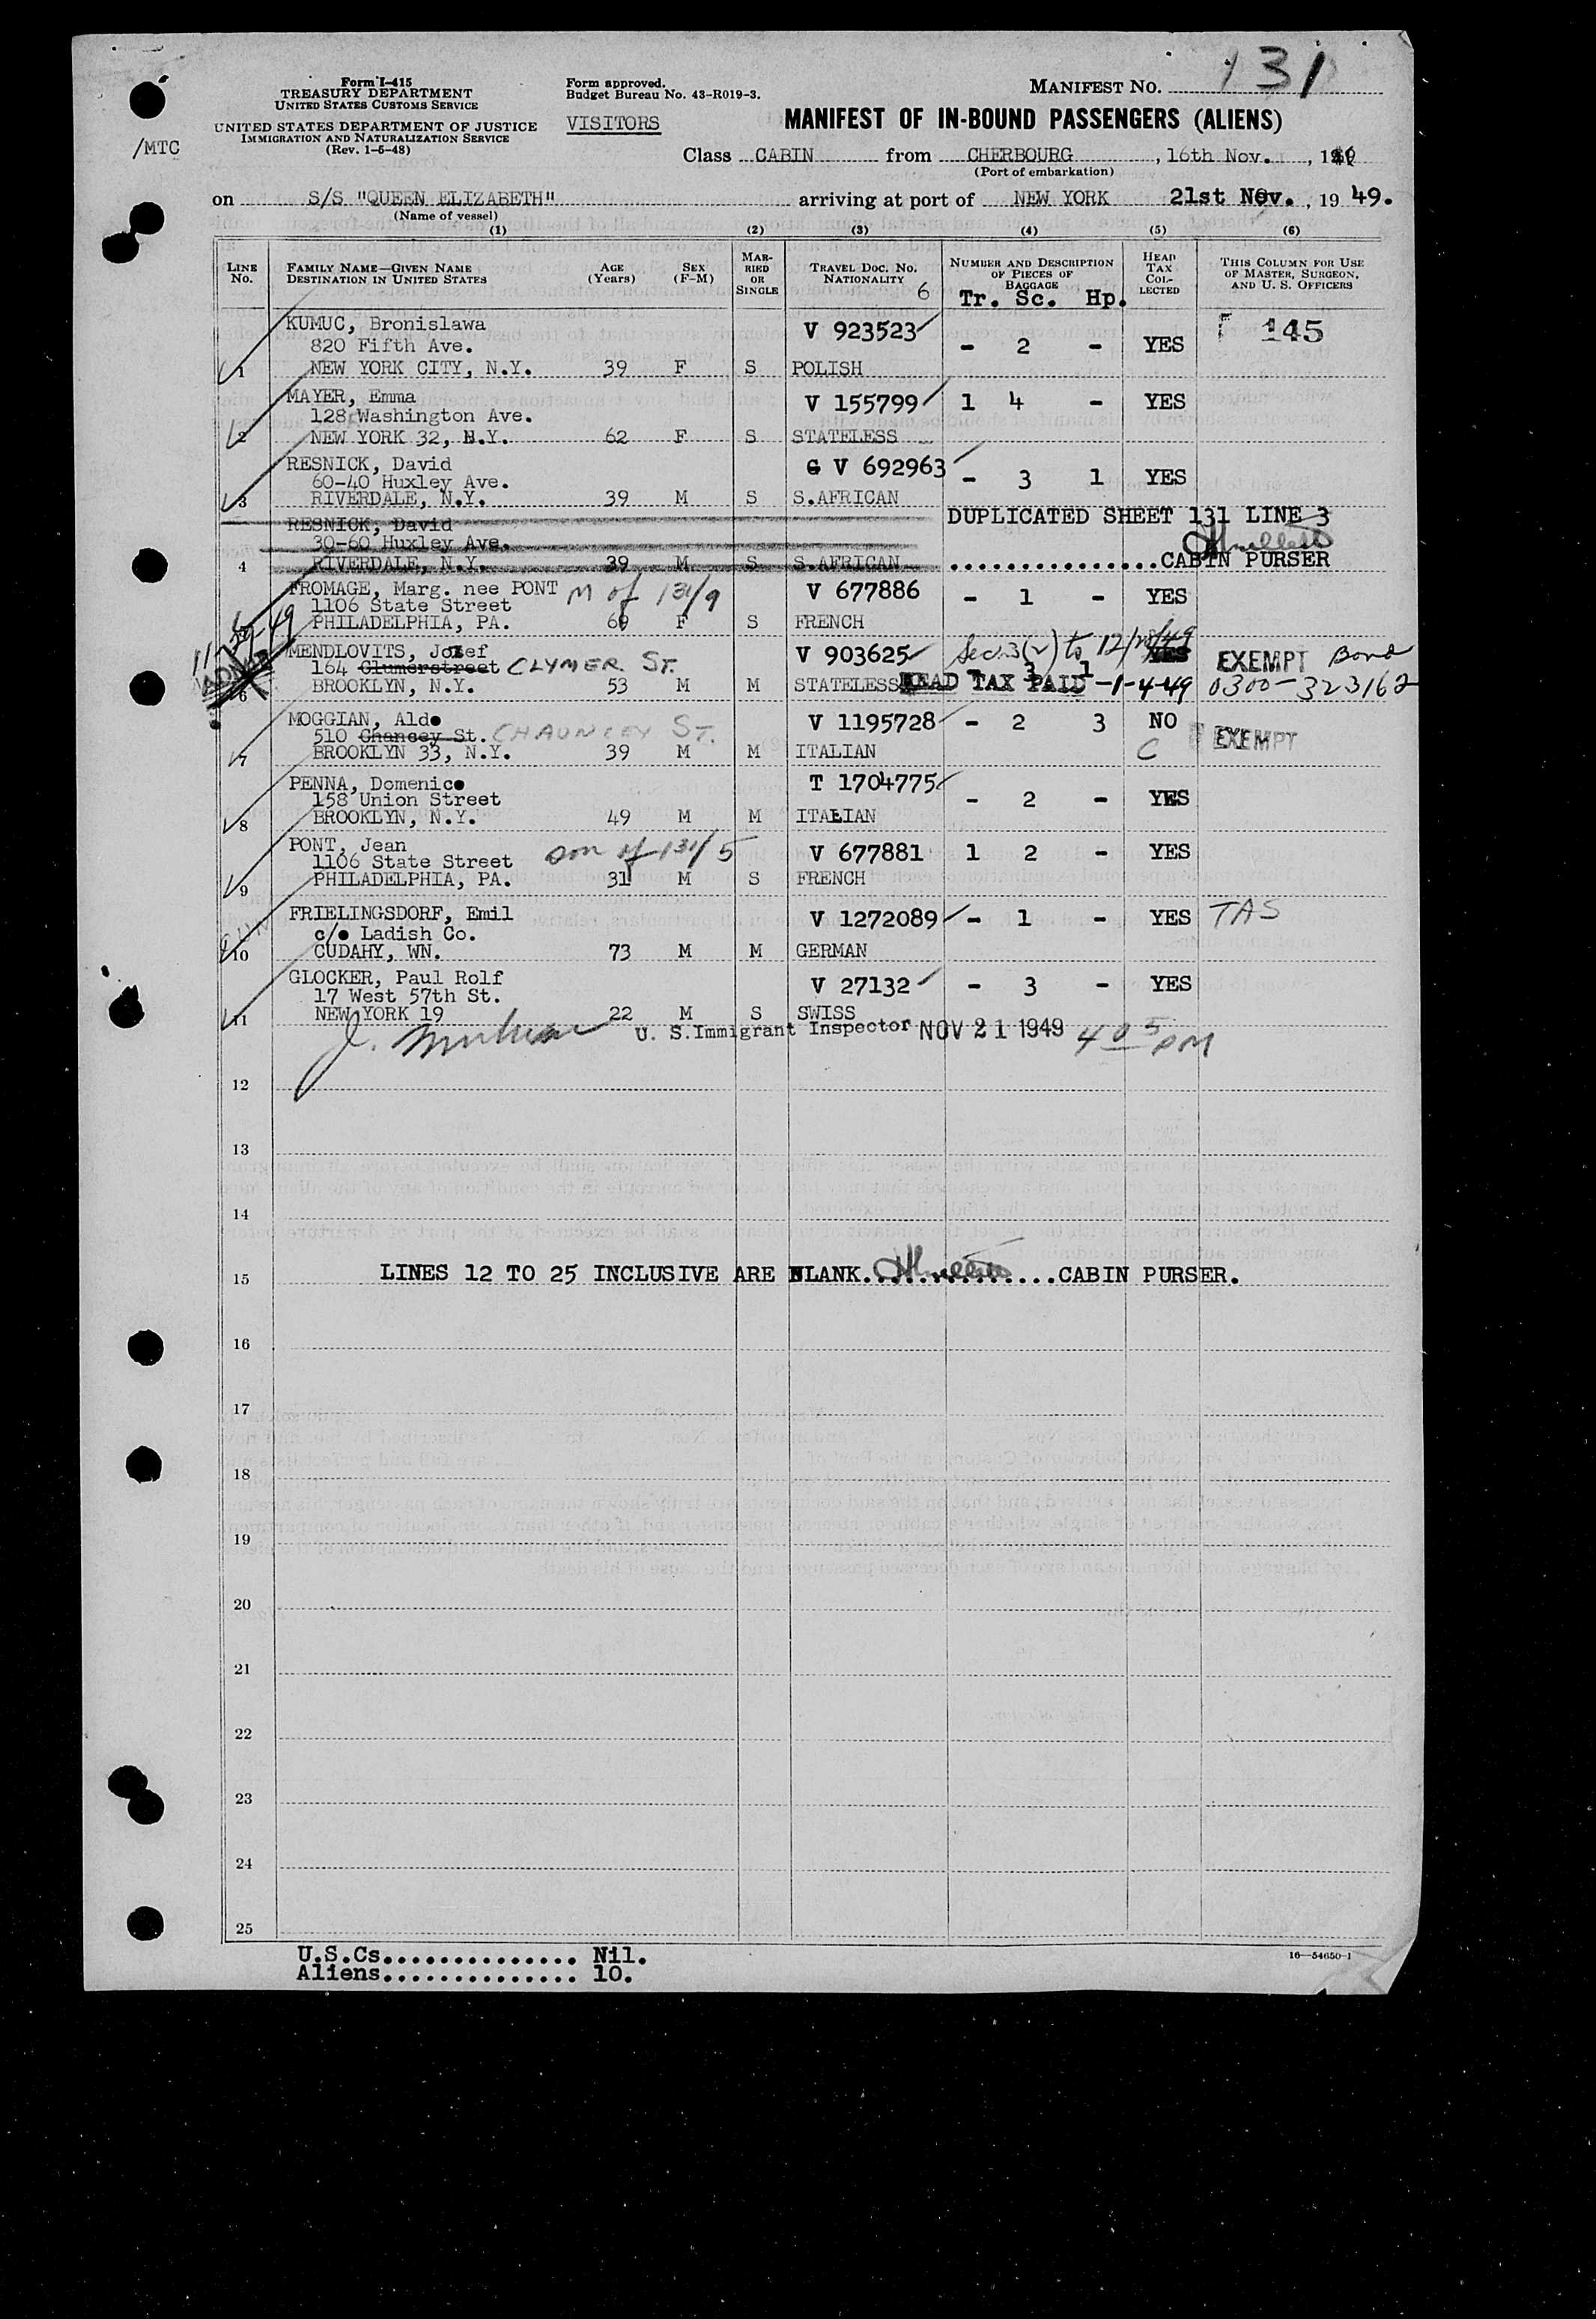 Form I-415
TREASURY DEPARTMENT
UNITED STATES CUSTOMS SERVICE
UNITED STATES DEPARTMENT OF JUSTICE
IMMIGRATION AND NATURALIZATION SERVICE
(Rev. 1-5-48)
/MTC
Form approved.
Budget Bureau No. 43-R019-3.
VISITORS
MANIFEST NO. 131
MANIFEST OF IN-BOUND PASSENGERS (ALIENS)
Class CABIN from CHERBOURG, 16th Nov., 19
(Port of embarkation)
on S/S "QUEEN ELIZABETH" arriving at port of NEW YORK 21st Nov., 19 49.
(Name of vessel)
(1) (2) (3) (4) (5) (6)
LINE No.
FAMILY NAME—GIVEN NAME
DESTINATION IN UNITED STATES
AGE (Years)
SEX (F-M)
MARRIED OR SINGLE
TRAVEL DOC. NO. NATIONALITY
6
NUMBER AND DESCRIPTION OF PIECES OF BAGGAGE
Tr. Sc. Hp.
HEAD TAX COLLECTED
THIS COLUMN FOR USE OF MASTER, SURGEON, AND U. S. OFFICERS
KUMUC, Bronislawa V 923523 145
820 Fifth Ave. - 2 - YES
1 NEW YORK CITY, N.Y. 39 F S POLISH
MAYER, Emma V 155799 1 4 - YES
128 Washington Ave.
2 NEW YORK 32, N.Y. 62 F S STATELESS
RESNICK, David G V 692963 - 3 1 YES
60-40 Huxley Ave.
3 RIVERDALE, N.Y. 39 M S S.AFRICAN
RESNICK, David DUPLICATED SHEET 131 LINE 3
30-60 Huxley Ave.
4 RIVERDALE, N.Y. 39 M S S.AFRICAN ................CABIN PURSER
FROMAGE, Marg. nee PONT M of 131/9 V 677886 - 1 - YES
1106 State Street
PHILADELPHIA, PA. F S FRENCH
MENDLOVITS, Jozef V 903625 Sec. 3(2) to YES EXEMPT Bond
164 Glumerstreet CLYMER ST.
6 BROOKLYN, N.Y. 53 M M STATELESS HEAD TAX PAID -1-4-49 0300-323162
MOGGIAN, Aldo V 1195728 - 2 3 NO
510 Chancey St. CHAUNCEY ST. C EXEMPT
7 BROOKLYN 33, N.Y. 39 M M ITALIAN
PENNA, Domenico T 1704775
158 Union Street - 2 - YES
8 BROOKLYN, N.Y. 49 M M ITALIAN
PONT, Jean son of 131/5 V 677881 1 2 - YES
1106 State Street
9 PHILADELPHIA, PA. 31 M S FRENCH
FRIELINGSDORF, Emil V 1272089 - 1 - YES TAS
c/o Ladish Co.
10 CUDAHY, WN. 73 M M GERMAN
GLOCKER, Paul Rolf V 27132 - 3 - YES
17 West 57th St.
11 NEW YORK 19 22 M S SWISS
U. S. Immigrant Inspector NOV 21 1949 4 05 PM
12
13
14
15 LINES 12 TO 25 INCLUSIVE ARE BLANK................CABIN PURSER.
16
17
18
19
20
21
22
23
24
25
U.S.Cs............... Nil.
Aliens............... 10.
16—54650-1